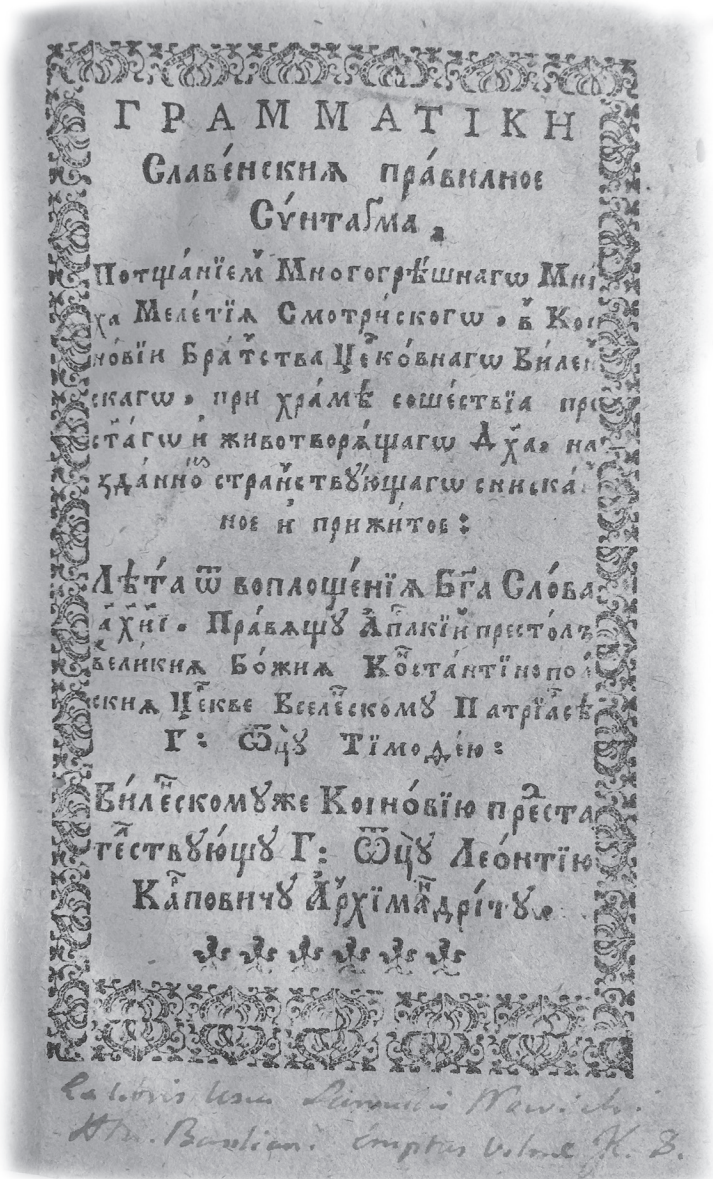 ГРАММАТІКИ
Славе́нскиѧ пра́вилное
Сѵ́нтаґма,
Потща́нїемъ Многогрѣ́шнагѡ Мни́
ха Меле́тїѧ Смотри́скогѡ, въ Кої
но́вїи Бра́тства Цеⷬ҇ко́внагѡ Виле́н
скагѡ, при хра́мѣ соше́ствїа пре
ста́гѡ и҆ животворѧ́щагѡ Дх҃а, на
зда́нноⷨ, стра́нствꙋющагѡ сниска́
ное и҆ прижи́тое:
Лѣ́та ѿ воплоще́нїѧ Бг҃а Сло́ва
а҂хи҃і. Пра́вѧщꙋ А҆пⷭ҇лкїй престо́лъ
вели́кїѧ Бо́жїѧ Коⷩ҇ста́нтїнопо́л
скиѧ Цеⷬ҇кве Вселеⷩ҇скомꙋ Патрїа́рсѣ
Г: Ѿц҃ꙋ Тїмоѳе́ю:
Ви́леⷩ҇скомꙋже Коіно́вїю преⷣста
теⷧ҇ствꙋю́щꙋ Г: Ѿц҃ꙋ Лео́нтїю
Каⷬ҇повичꙋ А҆рхїмаⷩ҇дрі́тꙋ.
emptus Vilnae